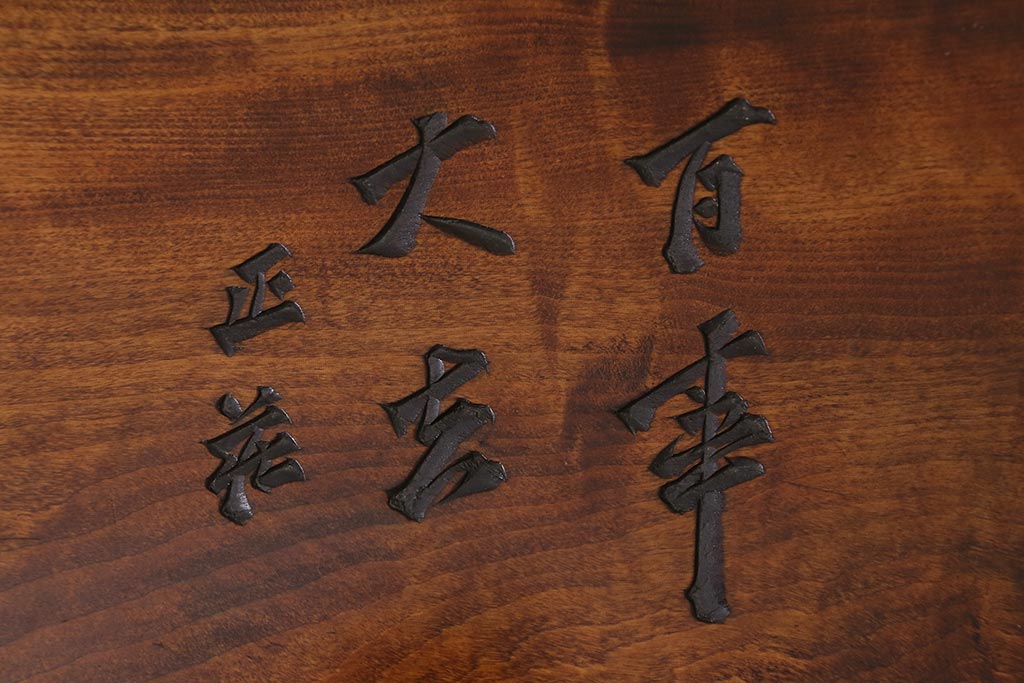 百事
大吉
正